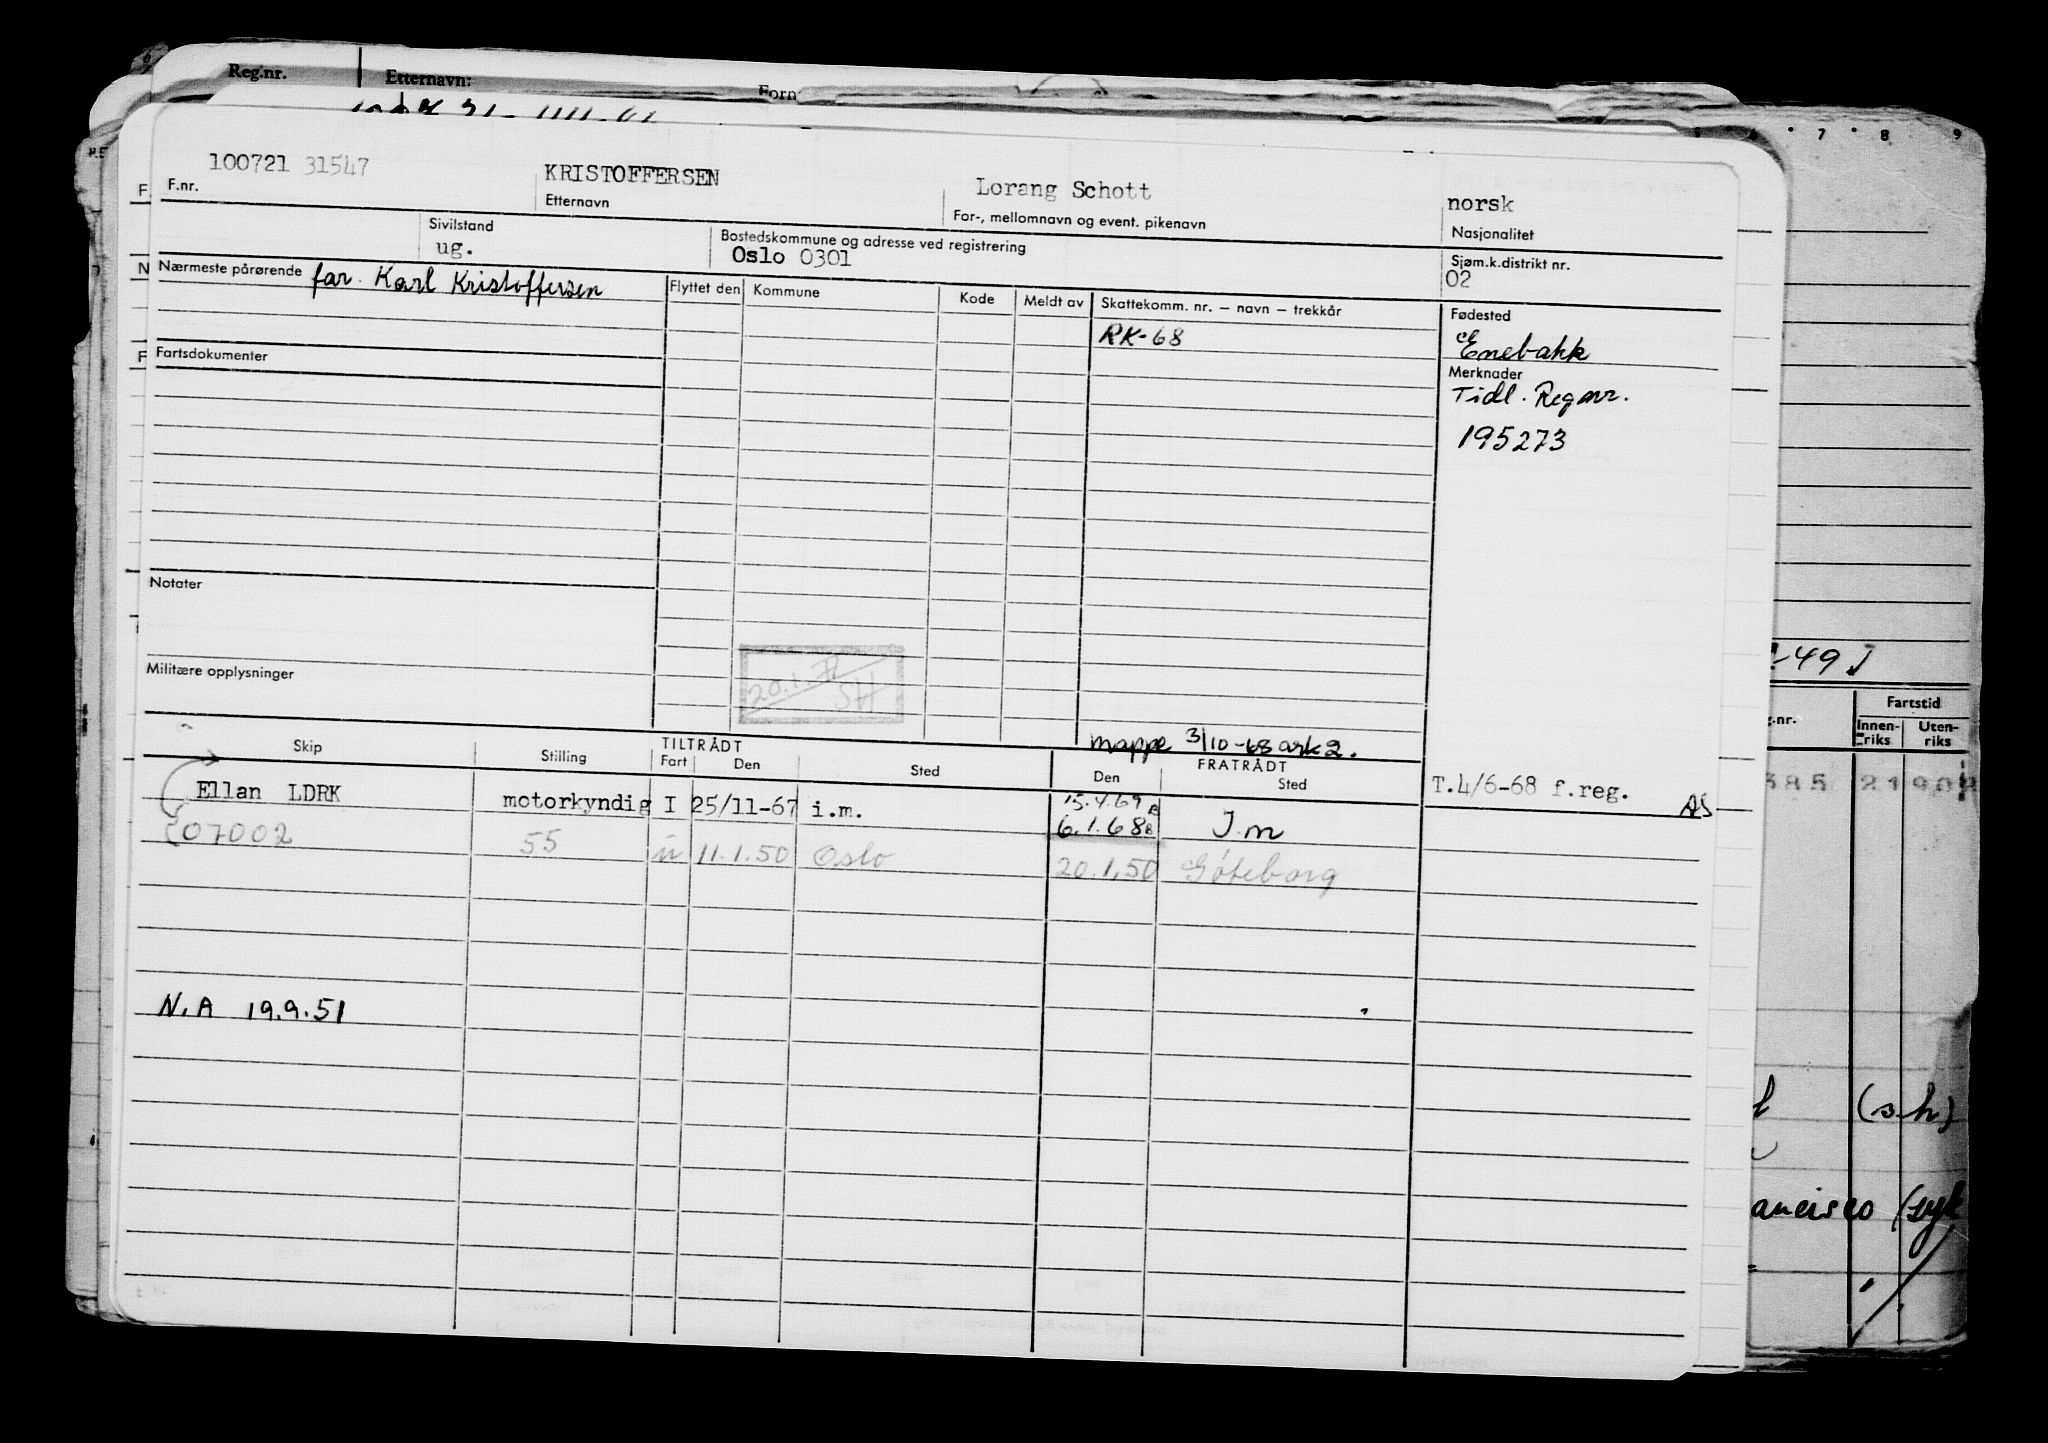 Reg.nr. Etternavn: Forn
100721 31547 KRISTOFFERSEN Lorang Schott norsk
F.nr. Etternavn For-, mellomnavn og event. pikenavn Nasjonalitet
Sivilstand Bostedskommune og adresse ved registrering Sjøm.k.distrikt nr.
ug. Oslo 0301 02
Nærmeste pårørende far. Karl Kristoffersen Flyttet den Kommune Kode Meldt av Skattekomm. nr. – navn – trekkår Fødested
RK-68 Enebakk
Fartsdokumenter Merknader
Tidl. Regnr.
195273
Notater
Militære opplysninger 20.1.71
SH
-49
Fartstid
g.nr. Innen-riks Uten-riks
mappe 3/10-68 ark 2.
Skip Stilling TILTRÅDT FRATRÅDT
Fart Den Sted Den Sted
Ellan LDRK motorkyndig I 25/11-67 i.m. 15.4.69 T.4/6-68 f.reg. AS
6.1.68 I.m
07002 55 u 11.1.50 Oslo 20.1.50 Göteborg
385 21
N.A 19.9.51
(s-h)
ancisco (syk